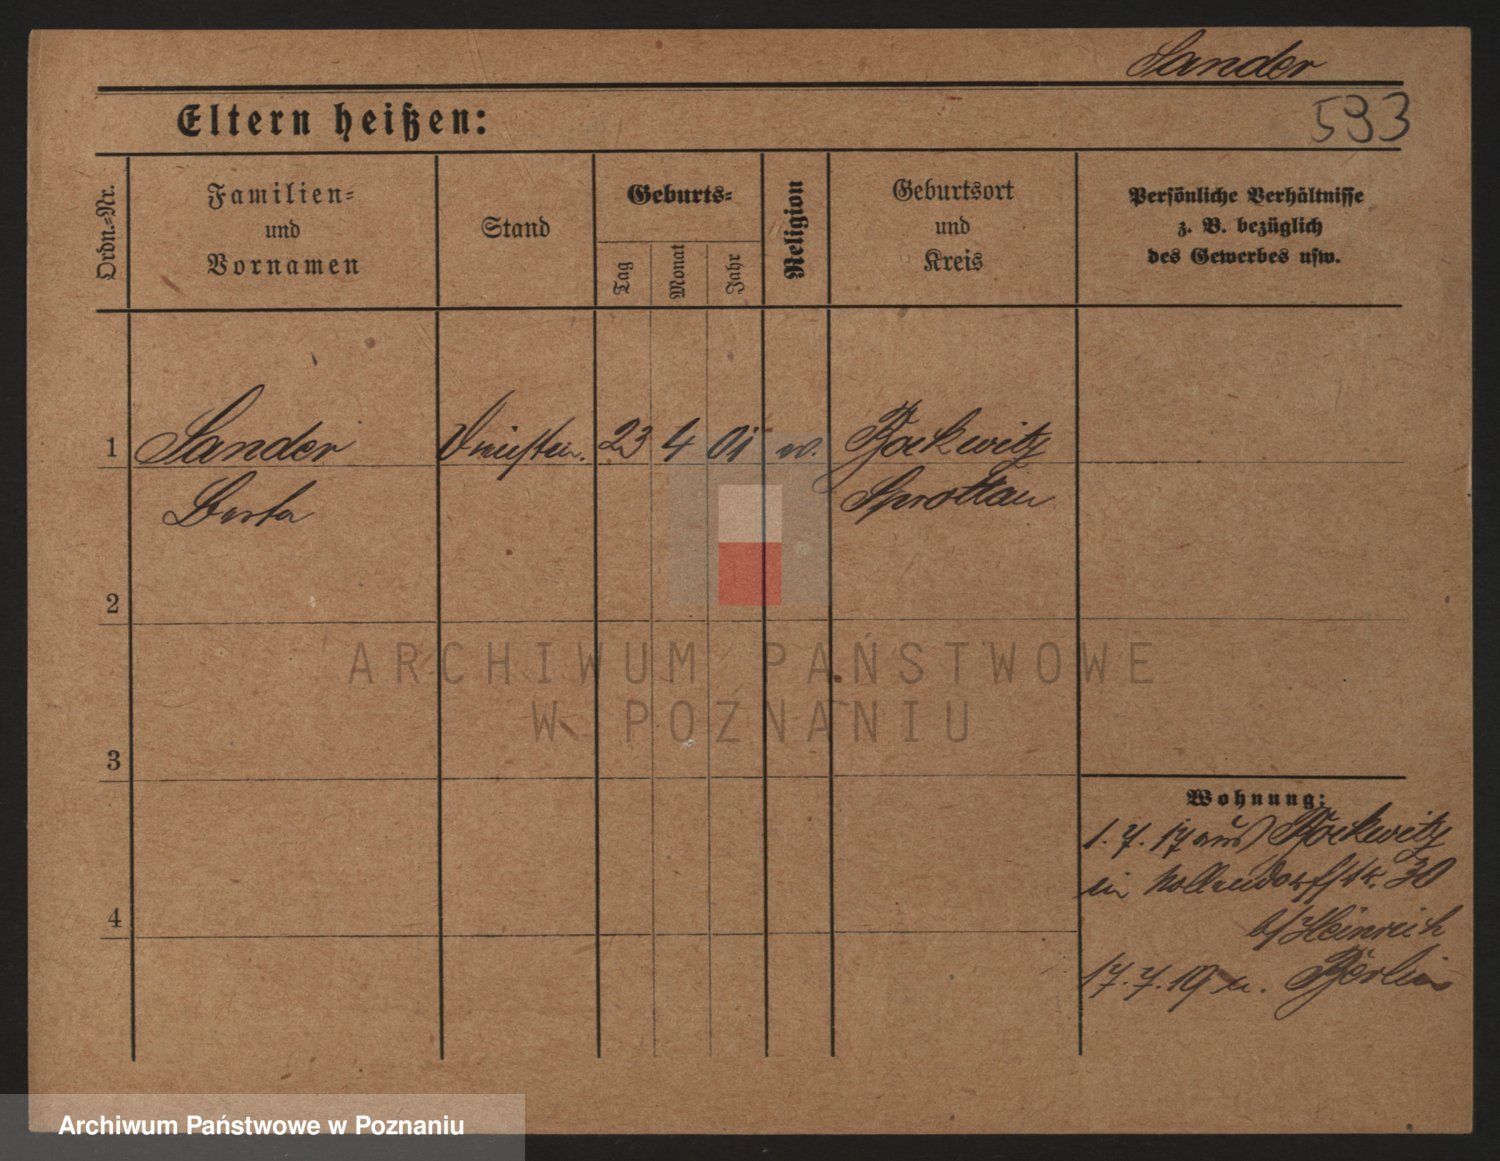 Sander
593
Eltern heißen:
Ordn.-Nr.
Familien-
und
Vornamen
Stand
Geburts-
Tag
Monat
Jahr
Religion
Geburtsort
und
Kreis
Persönliche Verhältnisse
z. B. bezüglich
des Gewerbes usw.
1 Sander 23 4 01 Bockwitz
Berta Sprottau
2
3
4
ARCHIWUM PAŃSTWOWE
W POZNANIU
Wohnung:
1.7.17 aus Bockwitz
in Nollendorfstr. 30
b/Heinrich
17.7.19 n. Berlin
Archiwum Państwowe w Poznaniu